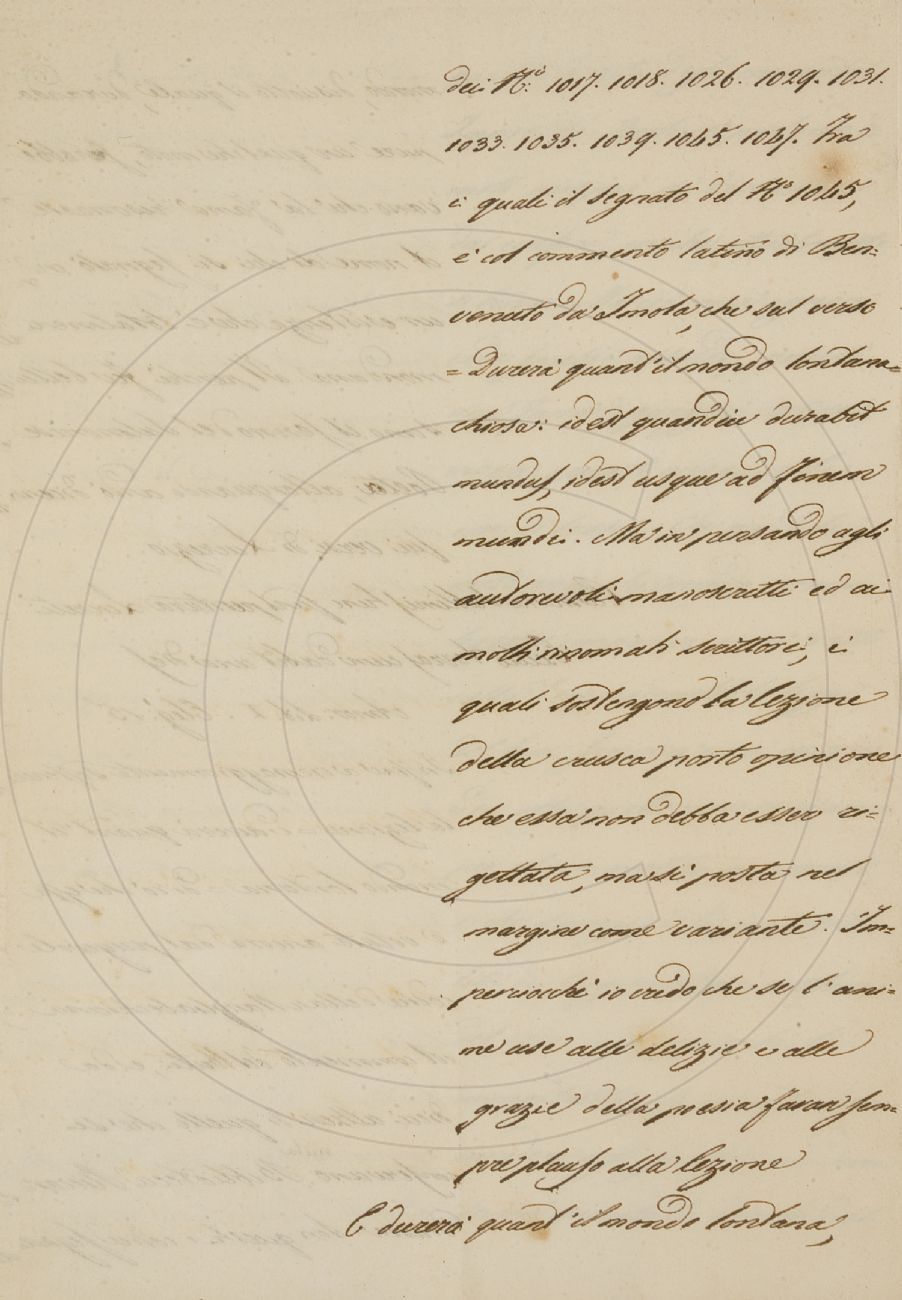 dei N.i 1017. 1018. 1026. 1029. 1031.
1033. 1035. 1039. 1045. 1047. Fra
i quali il segnato del N.o 1045,
è col commento latino di Ben=
venuto da Imola, che sul verso
= Durerà quant'il mondo lontana=
chiosa: idest quandiu durabit
mundus, idest usque ad finem
mundi. Ma in pensando agli
autorevoli manoscritti ed ai
molti rinomati scrittori, i
quali sostengono la lezione
della crusca porto opinione
che essa non debba esser ri=
gettata, ma si posta nel
margine come variante. Im=
perciocchè io credo che se l'ani=
me use alle delizie e alle
grazie della poesia faran sem=
pre plauso alla lezione
E durerà quant'il mondo lontana,